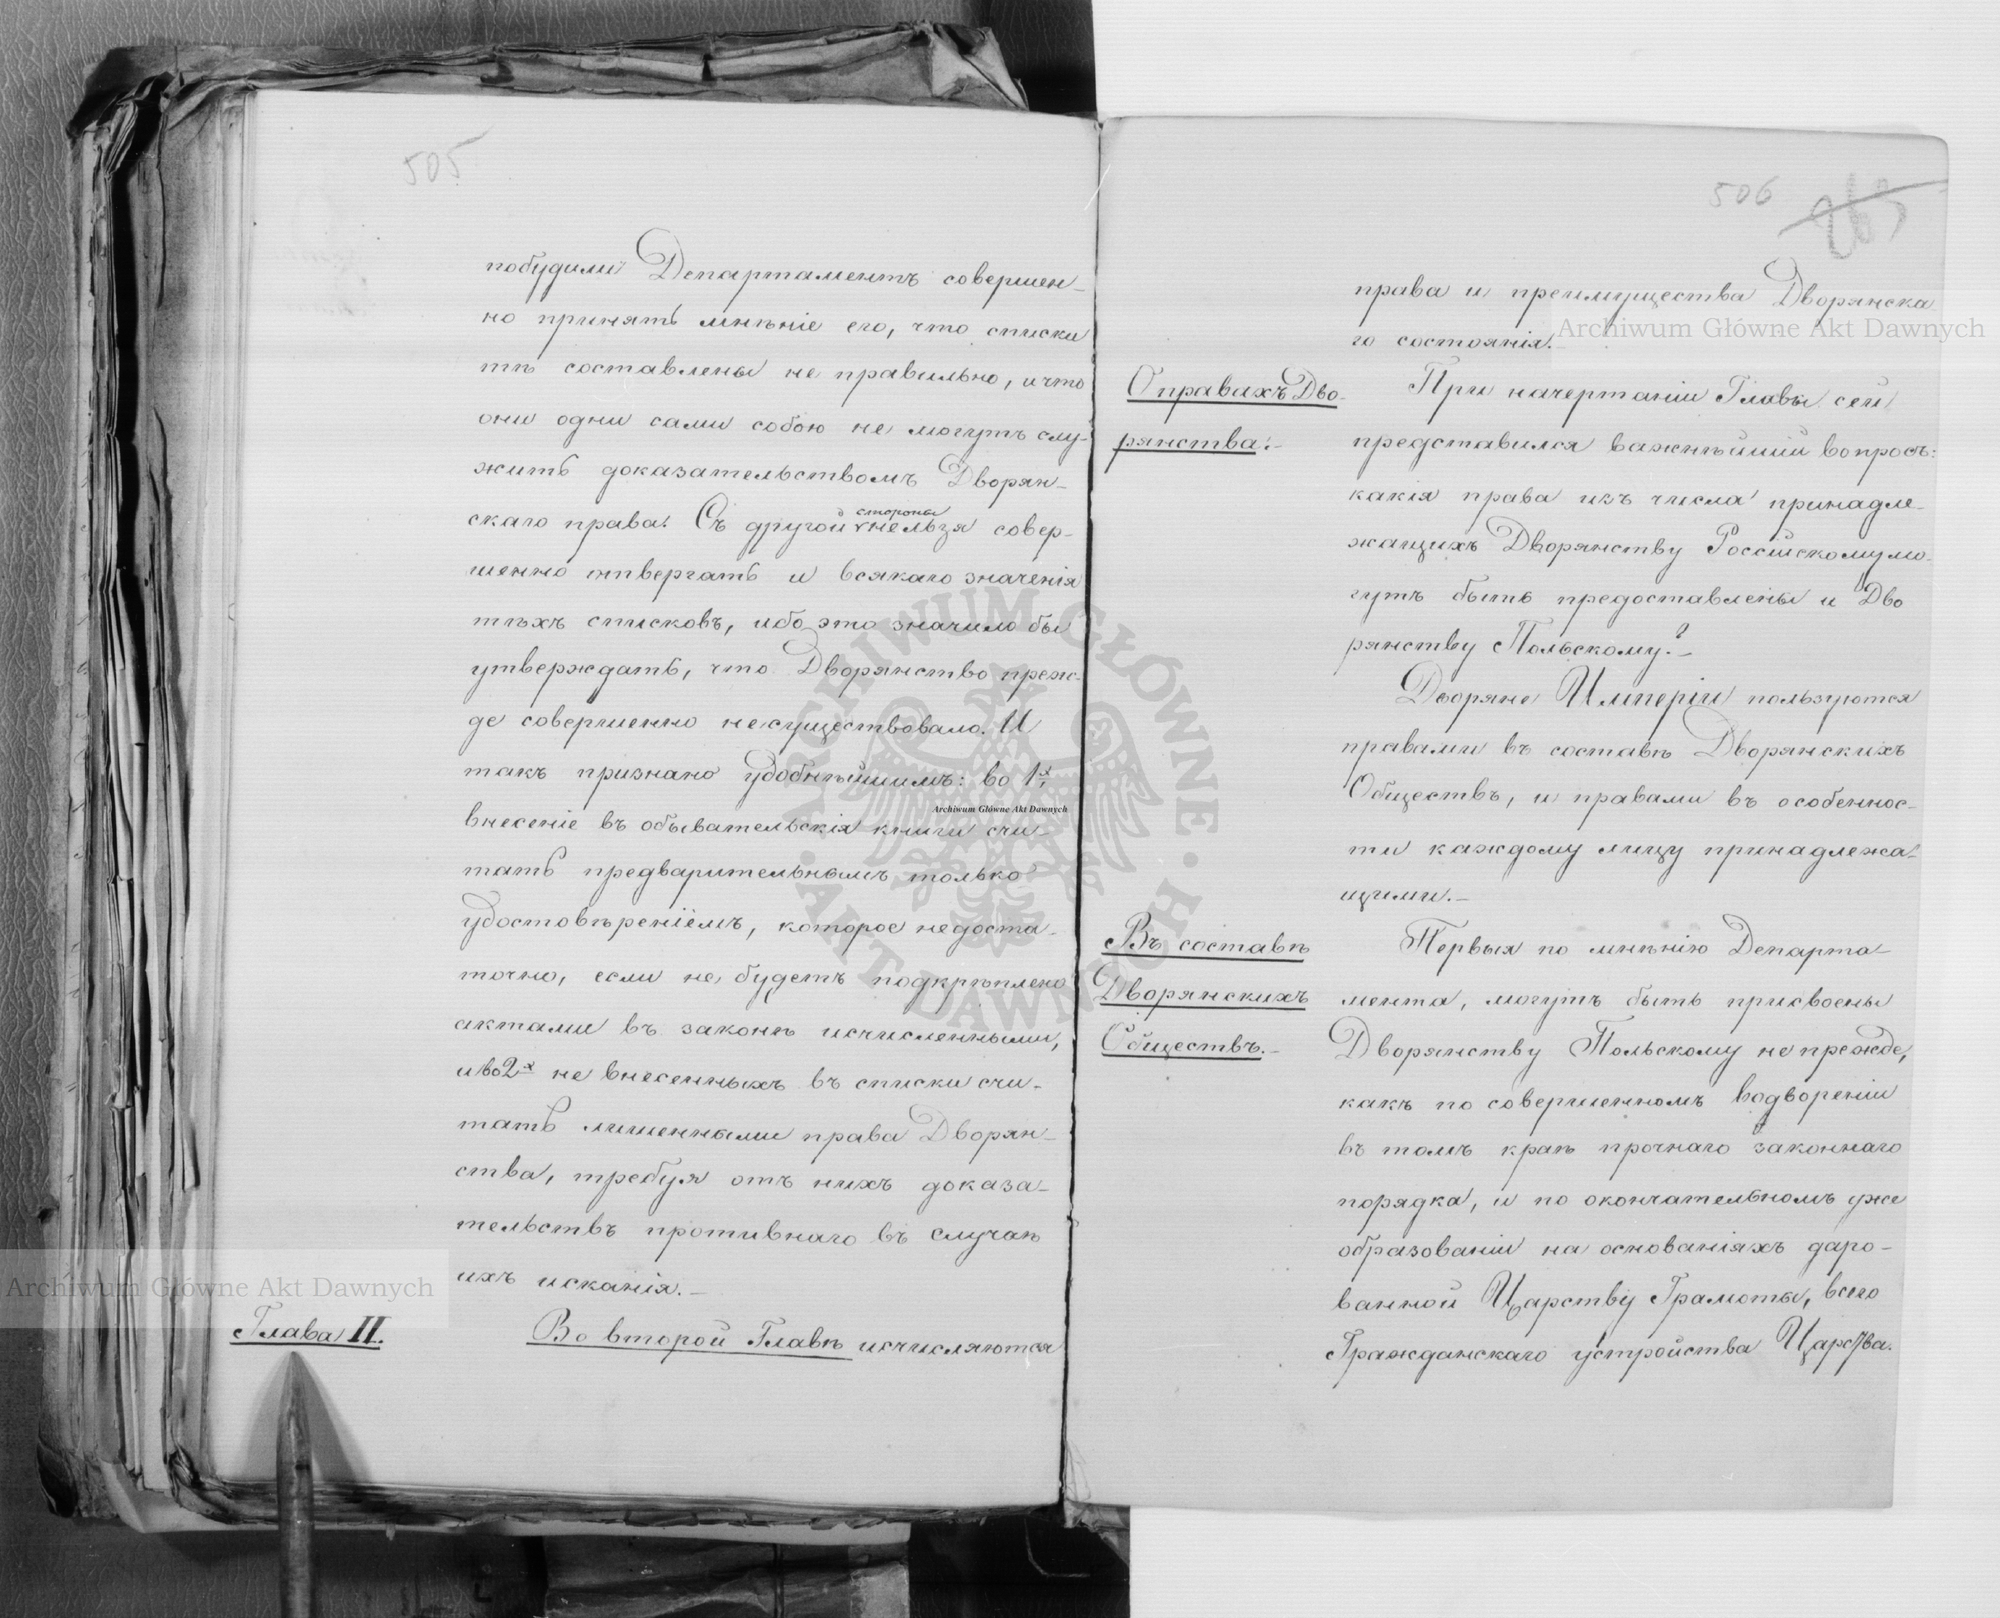 505
побудили Департаментъ совершен-
но принять мнѣніе его, что списки
тѣ составлены не правильно, и что
они одни сами собою не могутъ слу-
жить доказательствомъ Дворян-
скаго права. Съ другой стороны нельзя совер-
шенно отвергать и всякаго значенія
тѣхъ списковъ, ибо это значило бы
утверждать, что Дворянство преж-
де совершенно не существовало. И
такъ признано удобнѣйшимъ: во 1х,
внесеніе въ обывательскія книги счи-
тать предварительнымъ только
удостовѣреніемъ, которое недоста-
точно, если не будетъ подкрѣплено
актами въ законѣ исчисленными,
и во 2х не внесенныхъ въ списки счи-
тать лишенными права Дворян-
ства, требуя отъ нихъ доказа-
тельствъ противнаго въ случаѣ
ихъ исканія.-
Глава II.
Во второй Главѣ исчисляются
506
права и преимущества Дворянска
го состоянія.
О правахъ Дво-
рянства.-
При начертаніи Главы сей
представился важнѣйшій вопросъ:
какія права изъ числа принадле-
жащихъ Дворянству Россійскому мо-
гутъ быть предоставлены и Дво
рянству Польскому?-
Дворяне Имперіи пользуются
правами въ составѣ Дворянскихъ
Обществъ, и правами въ особеннос-
ти каждому лицу принадлежа-
щими.-
Въ составѣ
Дворянскихъ
Обществъ.-
Первыя по мнѣнію Департа-
мента, могутъ быть присвоены
Дворянству Польскому не прежде,
какъ по совершенномъ водвореніи
въ томъ краѣ прочнаго законнаго
порядка, и по окончательномъ уже
образованіи на основаніяхъ даро-
ванной Царству Грамоты, всего
Гражданскаго устройства Царства.
Archiwum Główne Akt Dawnych
Archiwum Główne Akt Dawnych
Archiwum Główne Akt Dawnych
ARCHIWUM GŁÓWNE AKT DAWNYCH